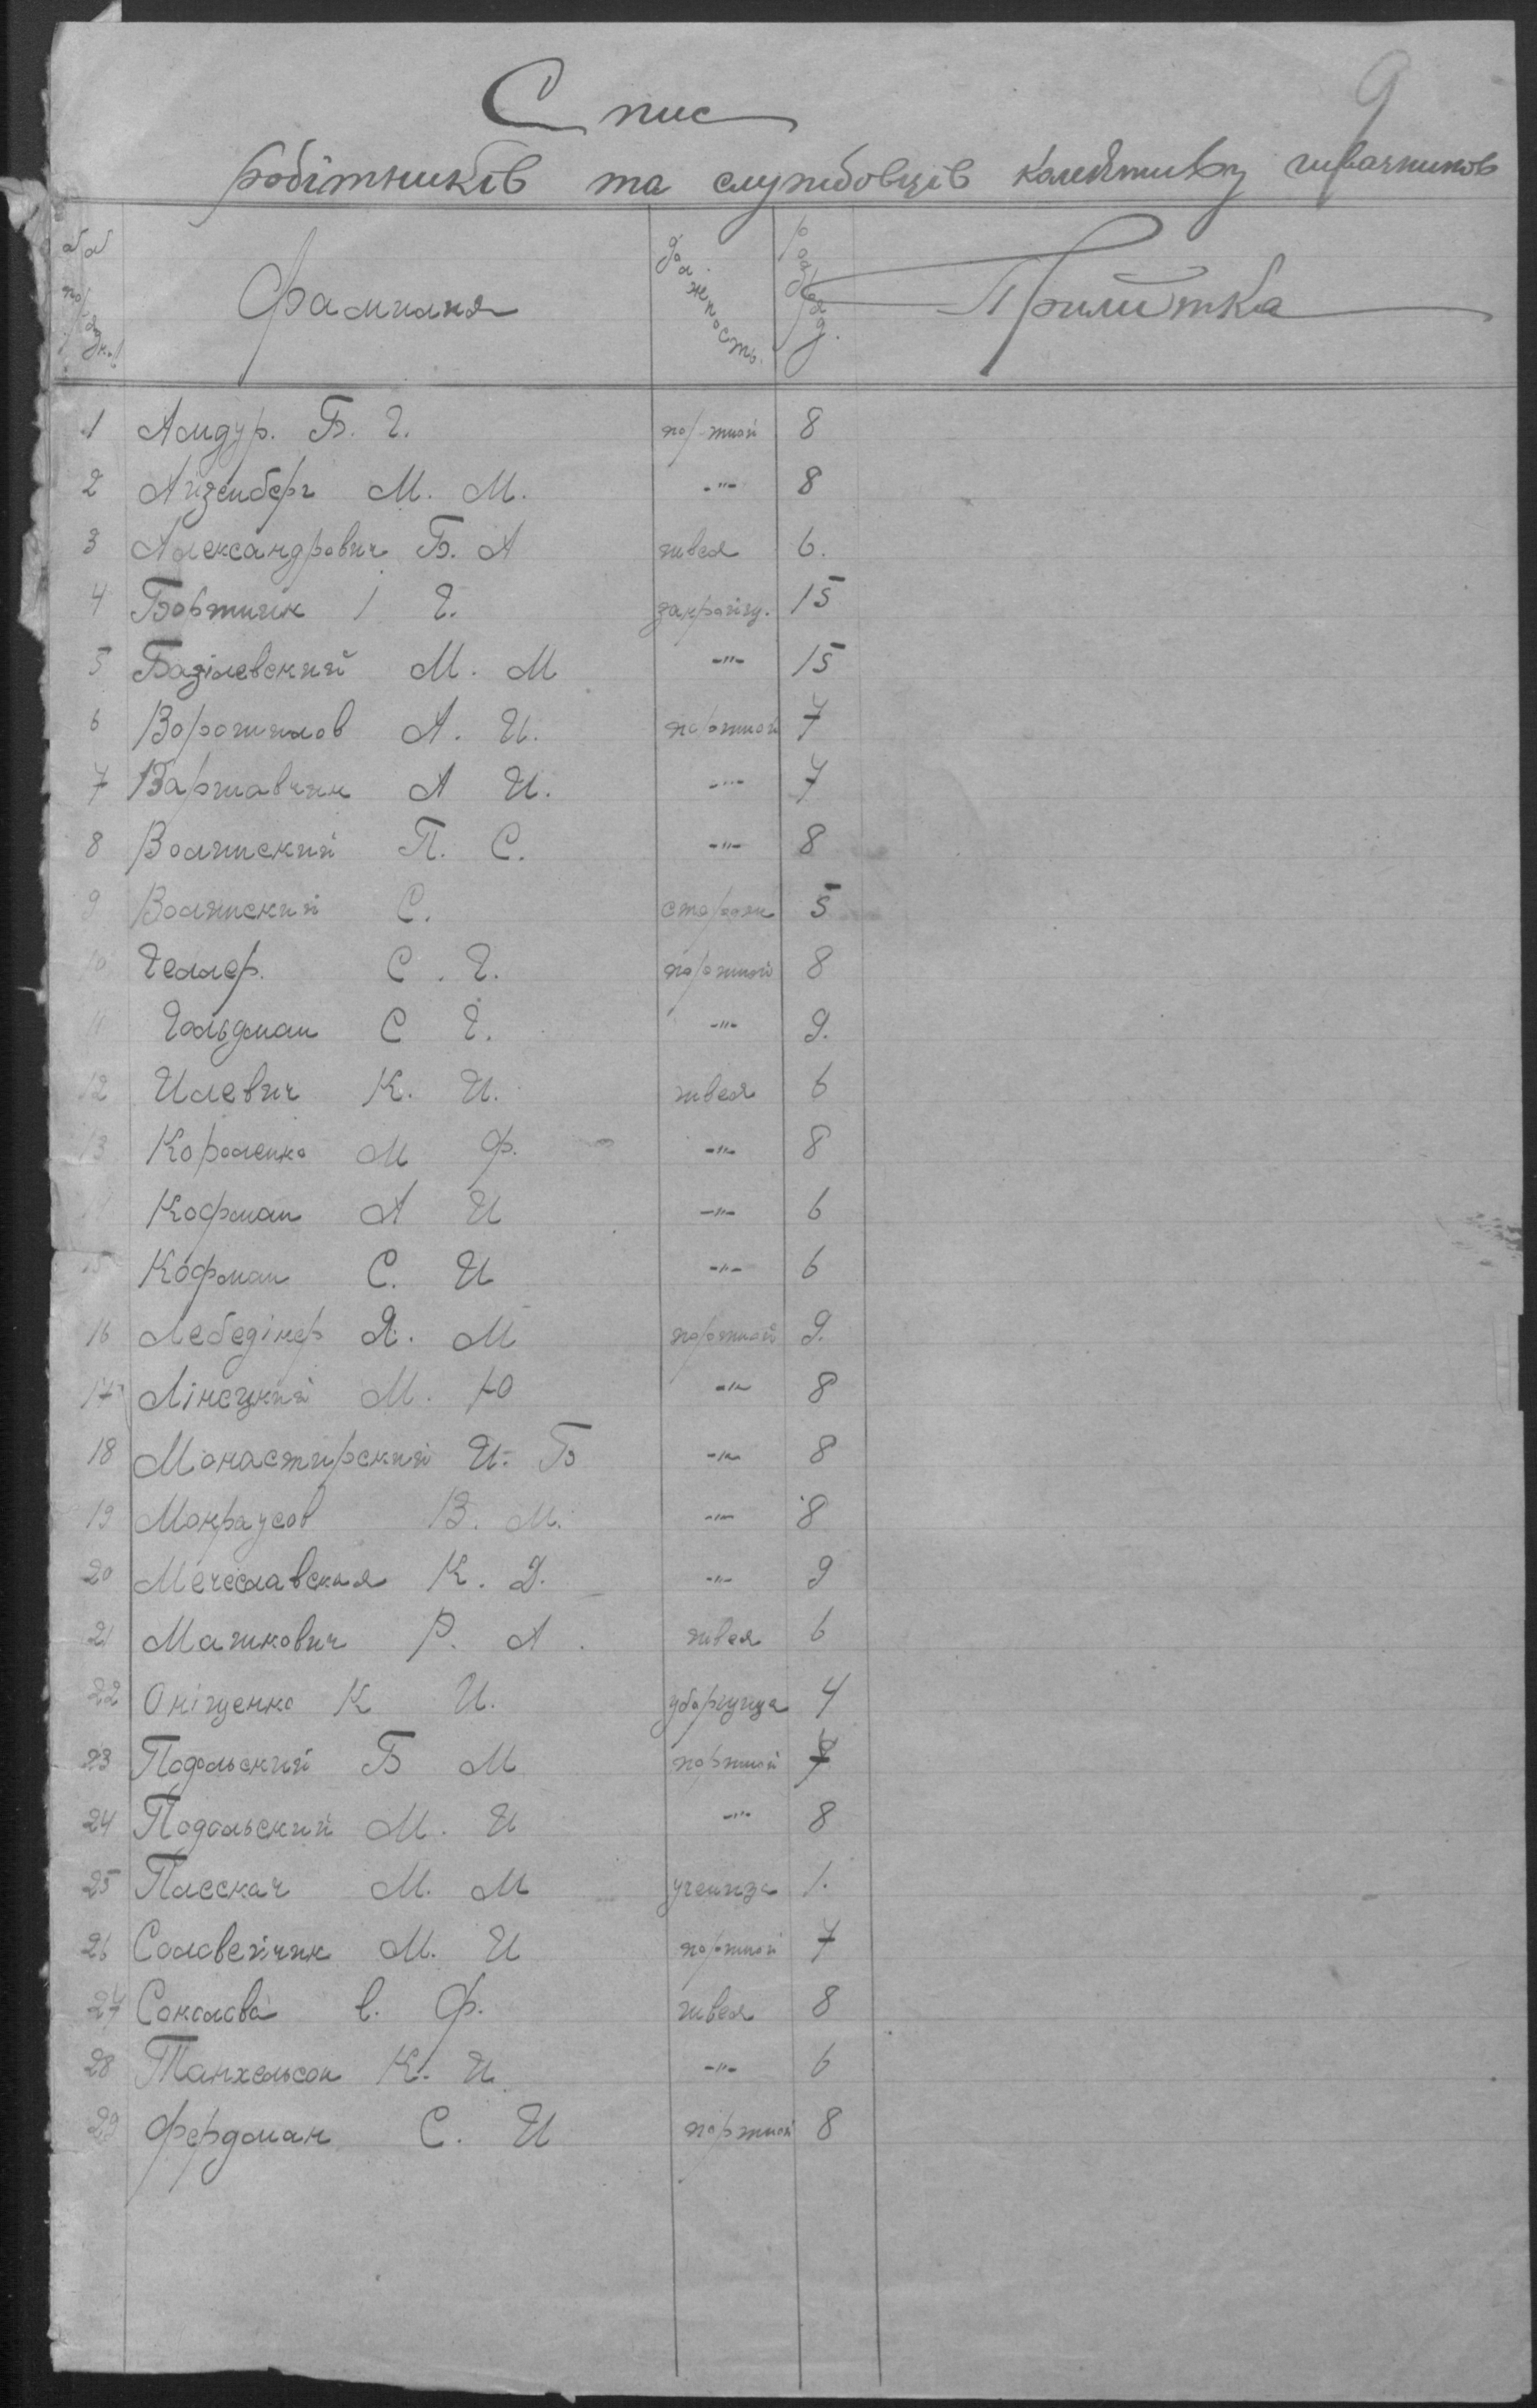 9
Спис
робітників та службовців колективу швачників
№№ по/рядк. Фамилия Должность Разряд. Примітка
1 Амдур. Б. Г. портной 8
2 Айзенберг М. М. -"- 8
3 Александрович Б. А швея 6.
4 Бортник Г. закройщ. 15
5 Базілевский М. М -"- 15
6 Ворошилов А. И. портной 7
7 Варшавчик А И. -"- 7
8 Волинский П. С. -"- 8
9 Волянский С. сторож 5
10 Геллер. С. Г. портной 8
11 Гольдман С Г. -"- 9.
12 Илевич К. И. швея 6
13 Короленко М Ф. -"- 8
Кофман А И -"- 6
15 Кофман С. И -"- 6
16 Лебедінер Я. М портной 9.
17 Лінецкий М. Ю -"- 8
18 Монастирский И. Б -"- 8
19 Мокраусов В. М. -"- 8
20 Мечеславская К. Д. -"- 9
21 Машкович Р. А. швея 6
22 Оніщенко К И. уборщица 4
23 Подольский Б М портной 7
24 Подольский М. И -"- 8
25 Плескач М. М ученица 1.
26 Соловейчик М. И портной 7
27 Соколова В. Ф. швея 8
28 Танхельсон К. И. -"- 6
29 Фердман С. И портной 8